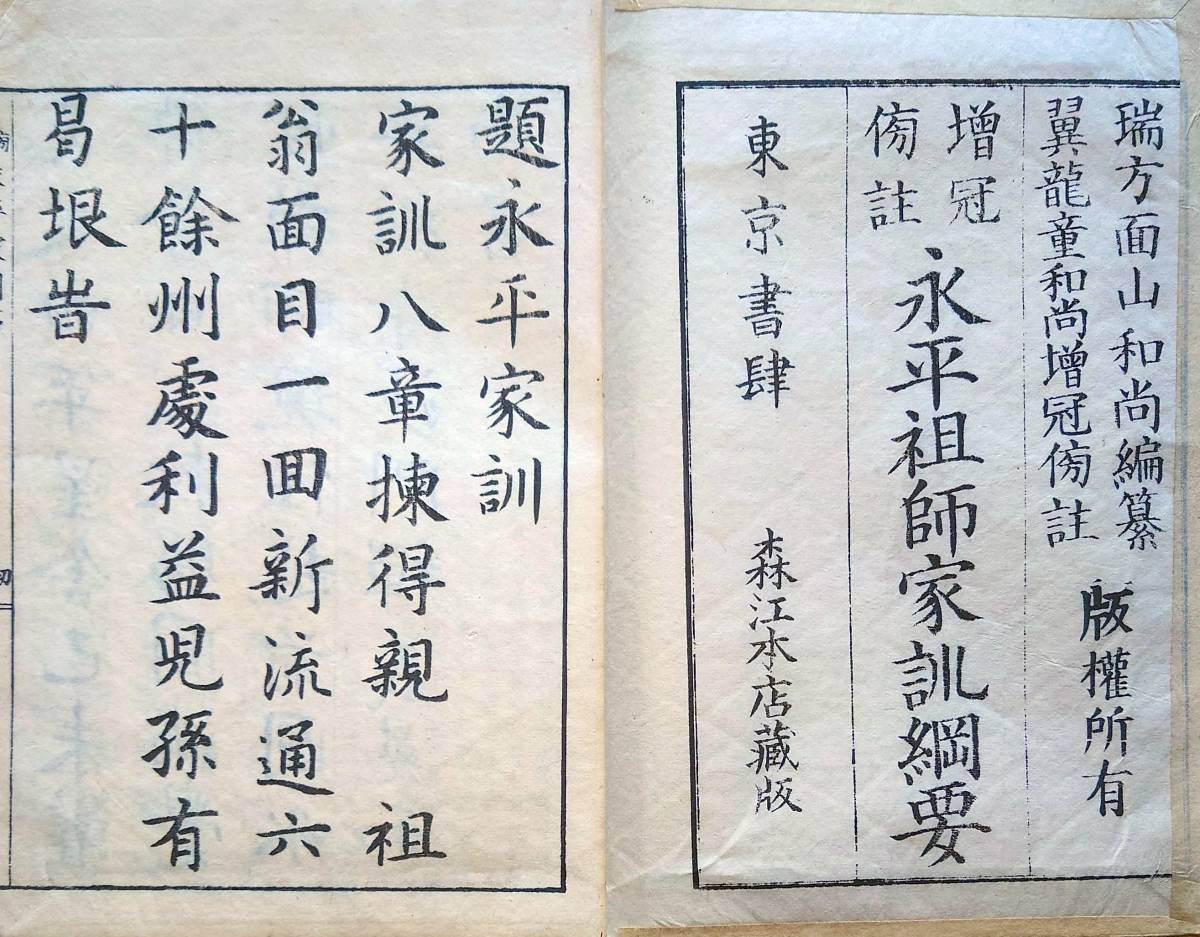 瑞方面山和尚編纂
翼龍童和尚增冠傍註
版權所有
增冠
傍註
永平祖師家訓綱要
東京書肆
森江本店藏版
題永平家訓
家訓八章揀得親 祖
翁面目一囬新流通六
十餘州處利益児孫有
曷垠旹